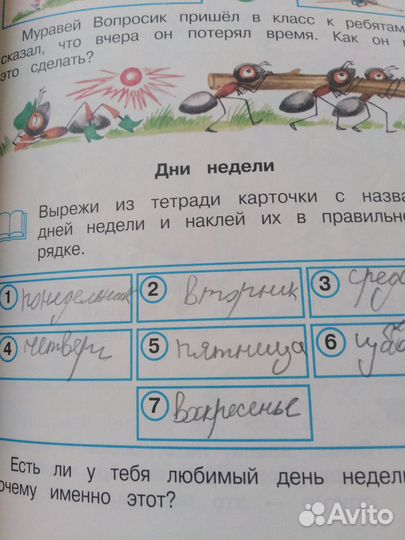 Муравей Вопросик пришёл в класс к ребятам
сказал, что вчера он потерял время. Как он
это сделать?
Дни недели
Вырежи из тетради карточки с назва
дней недели и наклей их в правильно
рядке.
1 понедельник
2 вторник
3 среда
4 четверг
5 пятница
6
7 воскресенье
Есть ли у тебя любимый день недел
очему именно этот?
Avito